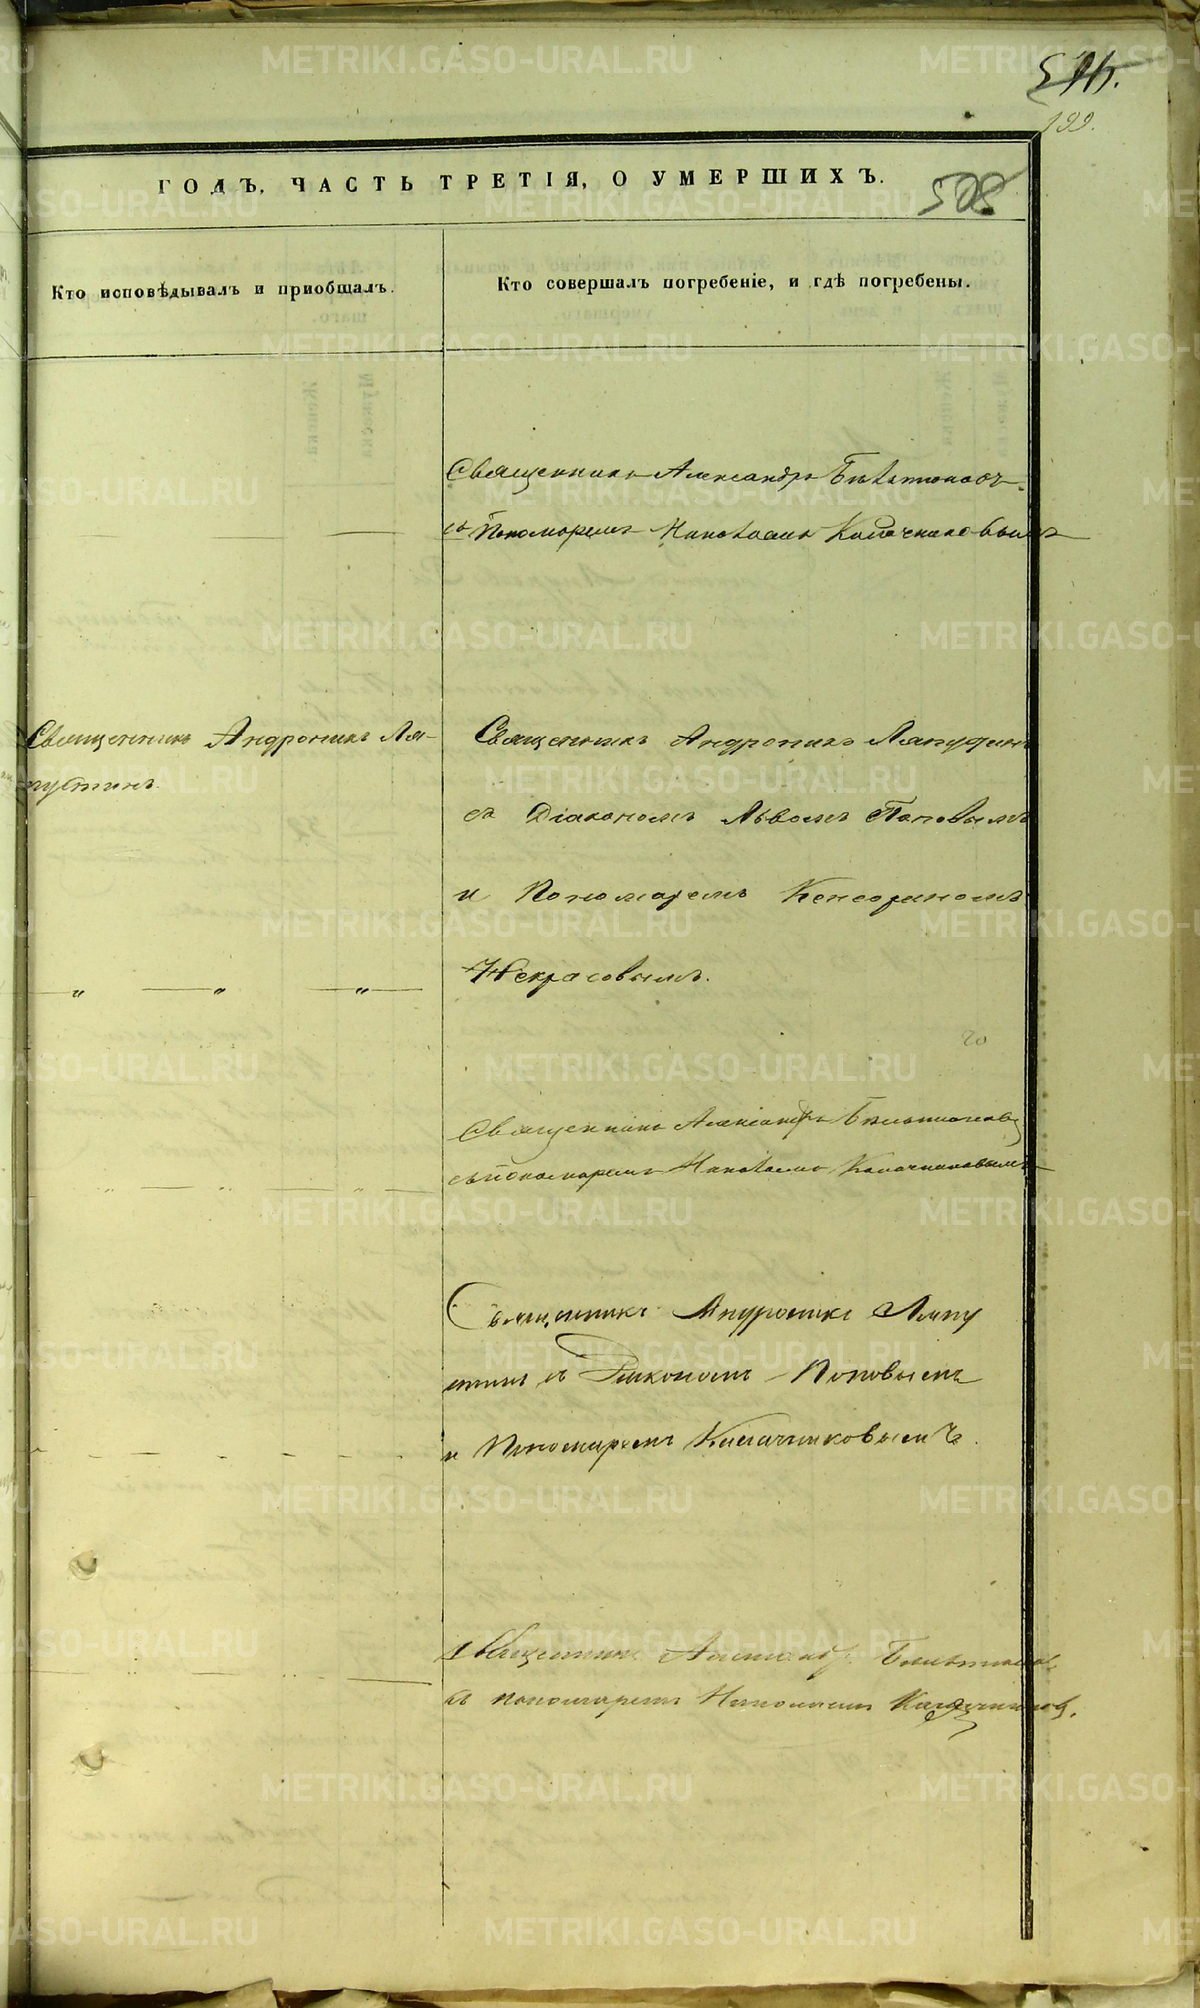 199.
ГОДЪ, ЧАСТЬ ТРЕТІЯ, О УМЕРШИХЪ.
508
Кто исповѣдывалъ и пріобщалъ.
Кто совершалъ погребеніе, и гдѣ погребены.
Священникъ Александръ
съ Пономаремъ Николаемъ Калачниковымъ
Священникъ Андроникъ Ля-
пустинъ.
Священникъ Андроникъ Ляпустинъ
съ Діакономъ Львомъ Поповымъ
и Пономаремъ Кенсориномъ
Некрасовымъ.
Священникъ Александръ
съ пономаремъ Николаемъ Калачниковымъ
Священникъ Андроникъ Ляпу
стинъ съ Діакономъ Поповымъ
и Пономаремъ Калачниковымъ.
Священникъ Александръ
съ пономаремъ Николаемъ
METRIKI.GASO-URAL.RU